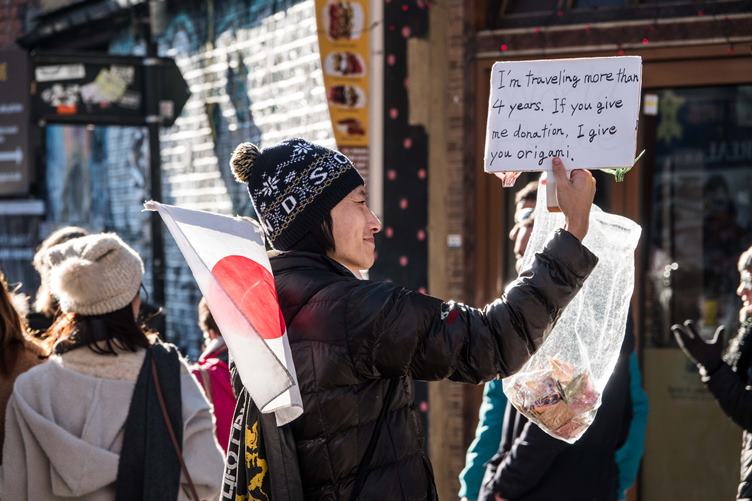 I'm traveling more than
4 years. If you give
me donation, I give
you origami.